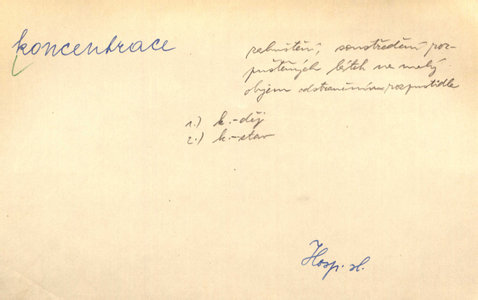 koncentrace
zahuštění, soustředění roz-
puštěných látek na malý
objem odstraněním rozpustidla
1.) k.-děj
2.) k.-stav
Hosp. sl.